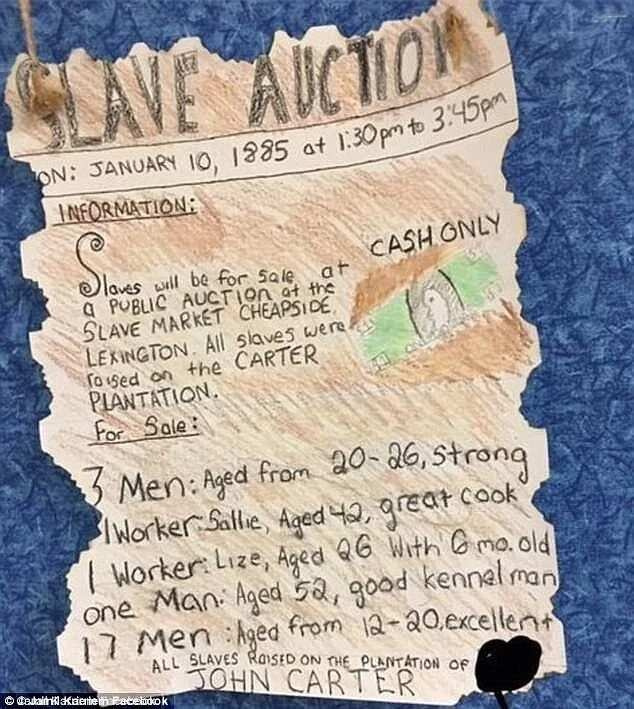 SLAVE AUCTION
ON: JANUARY 10, 1885 at 1:30pm to 3:45pm
INFORMATION:
CASH ONLY
Slaves will be for sale at
a PUBLIC AUCTION at the
SLAVE MARKET CHEAPSIDE,
LEXINGTON. All slaves were
raised on the CARTER
PLANTATION.
For Sale:
3 Men: Aged from 20-26, strong
1 Worker: Sallie, Aged 42, great cook
1 Worker: Lize, Aged 26 with 6 mo. old
one Man: Aged 52, good kennel man
17 Men: Aged from 12-20, excellent
ALL SLAVES RAISED ON THE PLANTATION OF
JOHN CARTER